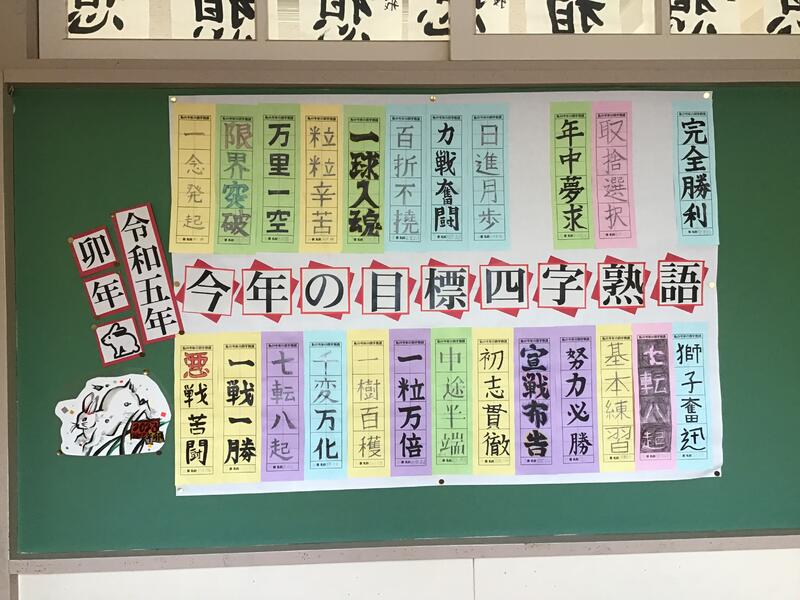 令和五年
卯年
2023
一念発起
限界突破
万里一空
粒粒辛苦
一球入魂
百折不撓
力戦奮闘
日進月歩
年中夢求
取捨選択
完全勝利
今年の目標四字熟語
悪戦苦闘
一戦一勝
七転八起
千変万化
一樹百穫
一粒万倍
中途半端
初志貫徹
宣戦布告
努力必勝
基本練習
七転八起
獅子奮迅